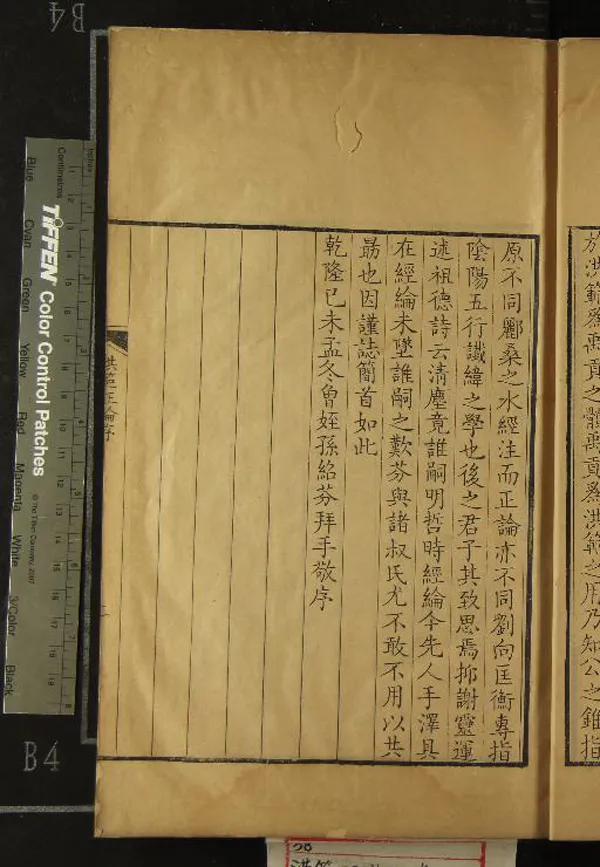 於洪範爲禹貢之體禹貢爲洪範之用乃知公之錐指
原不同酈桑之水經注而正論亦不同劉向匡衡專指
陰陽五行讖緯之學也後之君子其致思焉抑謝靈運
述祖德詩云清塵竟誰嗣明哲時經綸今先人手澤具
在經綸未墜誰嗣之歎芬與諸叔氏尤不敢不用以共
勗也因謹誌簡首如此
乾隆己未孟冬曾姪孫紹芬拜手敬序
洪範正論序
B4
B4
TIFFEN Color Control Patches
© The Tiffen Company, 2007
Centimetres
Inches
Blue
Cyan
Green
Yellow
Red
Magenta
White
3/Color
Black